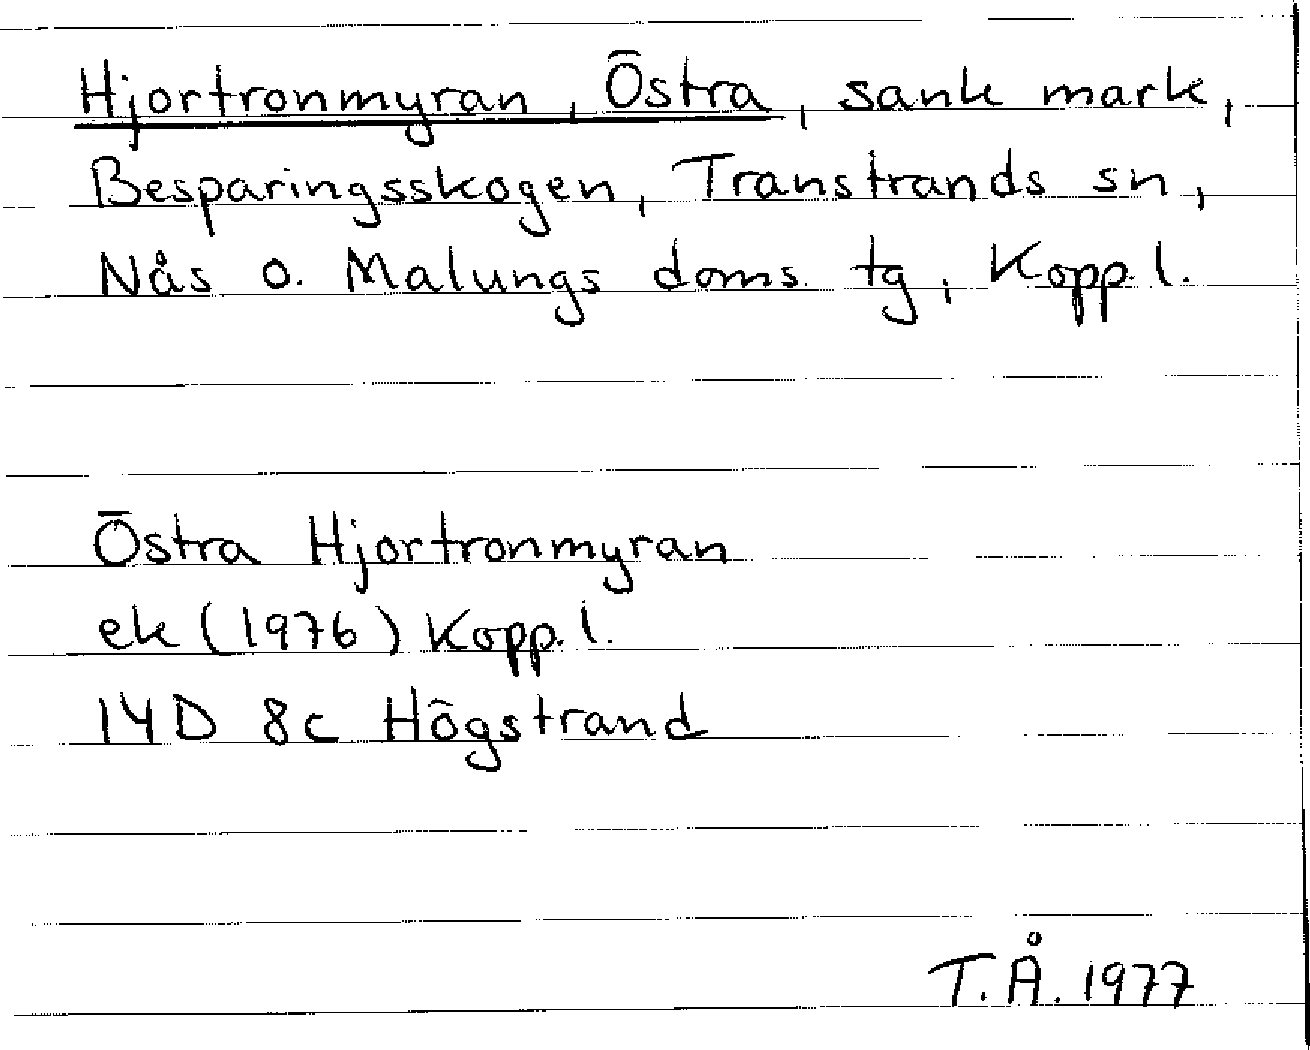 Hjortronmyran, Östra, sank mark,
Besparingsskogen, Transtrands sn,
Nås o. Malungs doms. tg, Kopp. l.
Östra Hjortronmyran
ek (1976) Kopp. l.
14D 8c Högstrand
T.Å. 1977